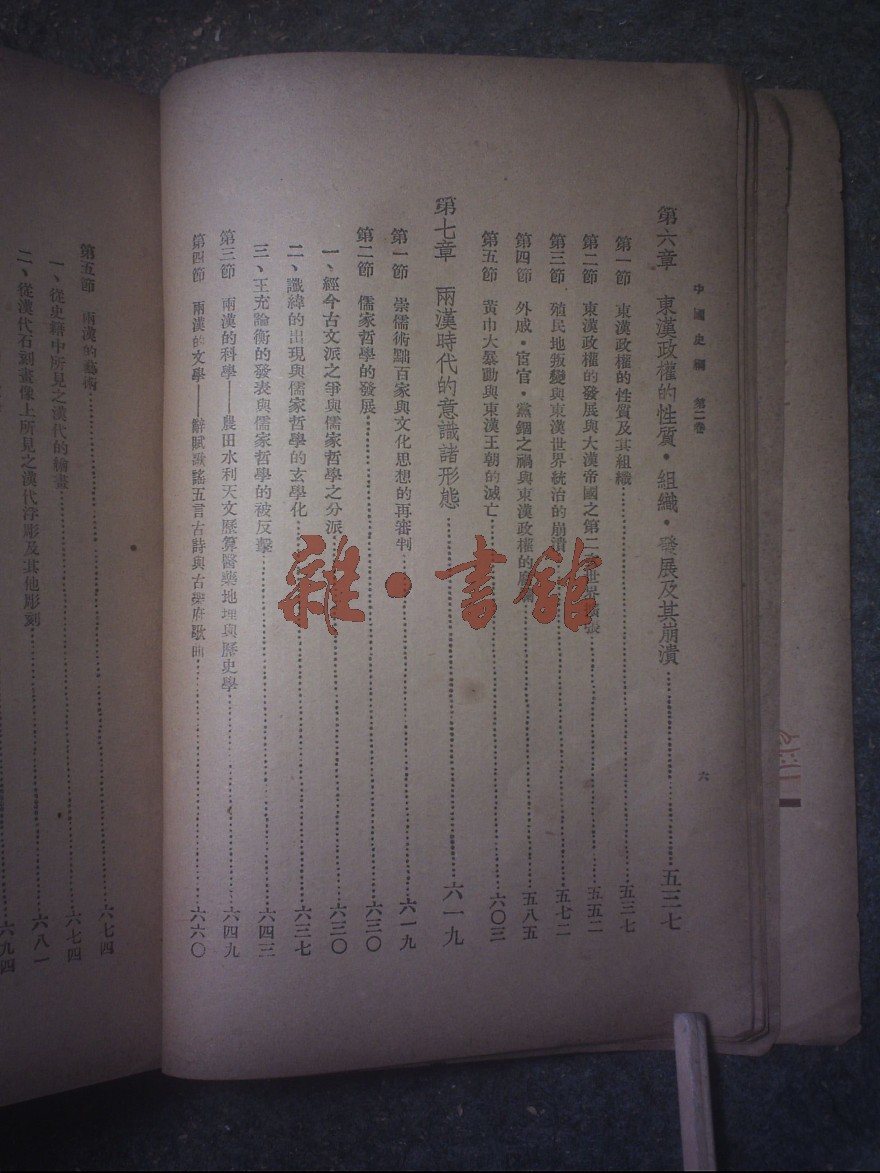 中國史綱 第二卷
六
第六章 東漢政權的性質·組織·發展及其崩潰 五三七
第一節 東漢政權的性質及其組織 五三七
第二節 東漢政權的發展與大漢帝國之第二 世界 張 五五二
第三節 殖民地叛變與東漢世界統治的崩潰 五七二
第四節 外戚·宦官·黨錮之禍與東漢政權的 五八五
第五節 黃巾大暴動與東漢王朝的滅亡 六〇三
第七章 兩漢時代的意識諸形態 六一九
第一節 崇儒術黜百家與文化思想的再審判 六一九
第二節 儒家哲學的發展 六三〇
一、經今古文派之爭與儒家哲學之分派 六三〇
二、讖緯的出現與儒家哲學的玄學化 六三七
三、王充論衡的發表與儒家哲學的被反擊 六四三
第三節 兩漢的科學——農田水利天文歷算醫藥地理與歷史學 六四九
第四節 兩漢的文學——辭賦歌謠五言古詩與古樂府歌曲 六六〇
第五節 兩漢的藝術 六七四
一、從史籍中所見之漢代的繪畫 六七四
二、從漢代石刻畫像上所見之漢代浮彫及其他彫刻 六八一
六九四
雜·書館